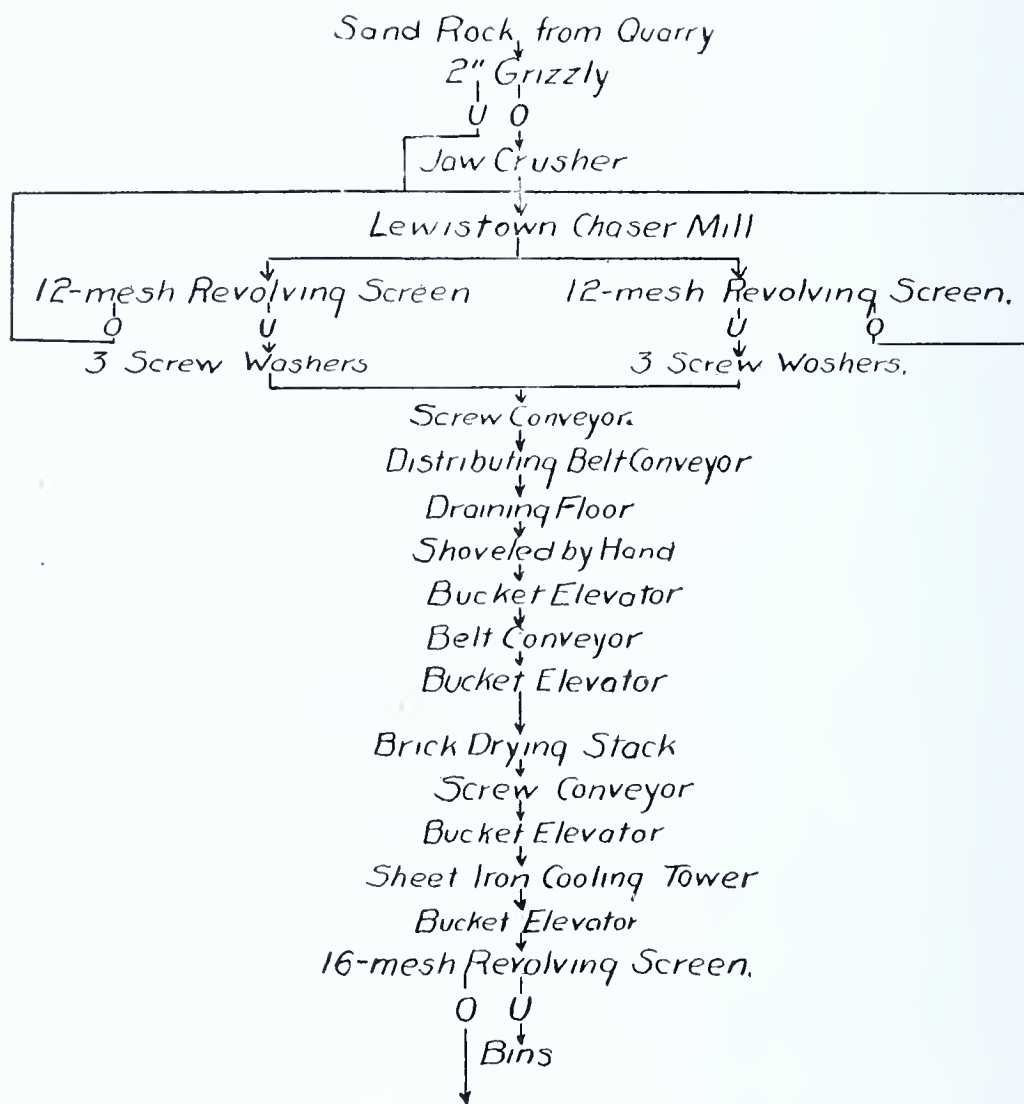 Sand Rock from Quarry
2" Grizzly
U O
Jaw Crusher
Lewistown Chaser Mill
12-mesh Revolving Screen 12-mesh Revolving Screen.
O U U O
3 Screw Washers 3 Screw Woshers.
Screw Conveyor.
Distributing Belt Conveyor
Draining Floor
Shoveled by Hand
Bucket Elevator
Belt Conveyor
Bucket Elevator
Brick Drying Stack
Screw Conveyor
Bucket Elevator
Sheet Iron Cooling Tower
Bucket Elevator
16-mesh Revolving Screen.
O U
Bins